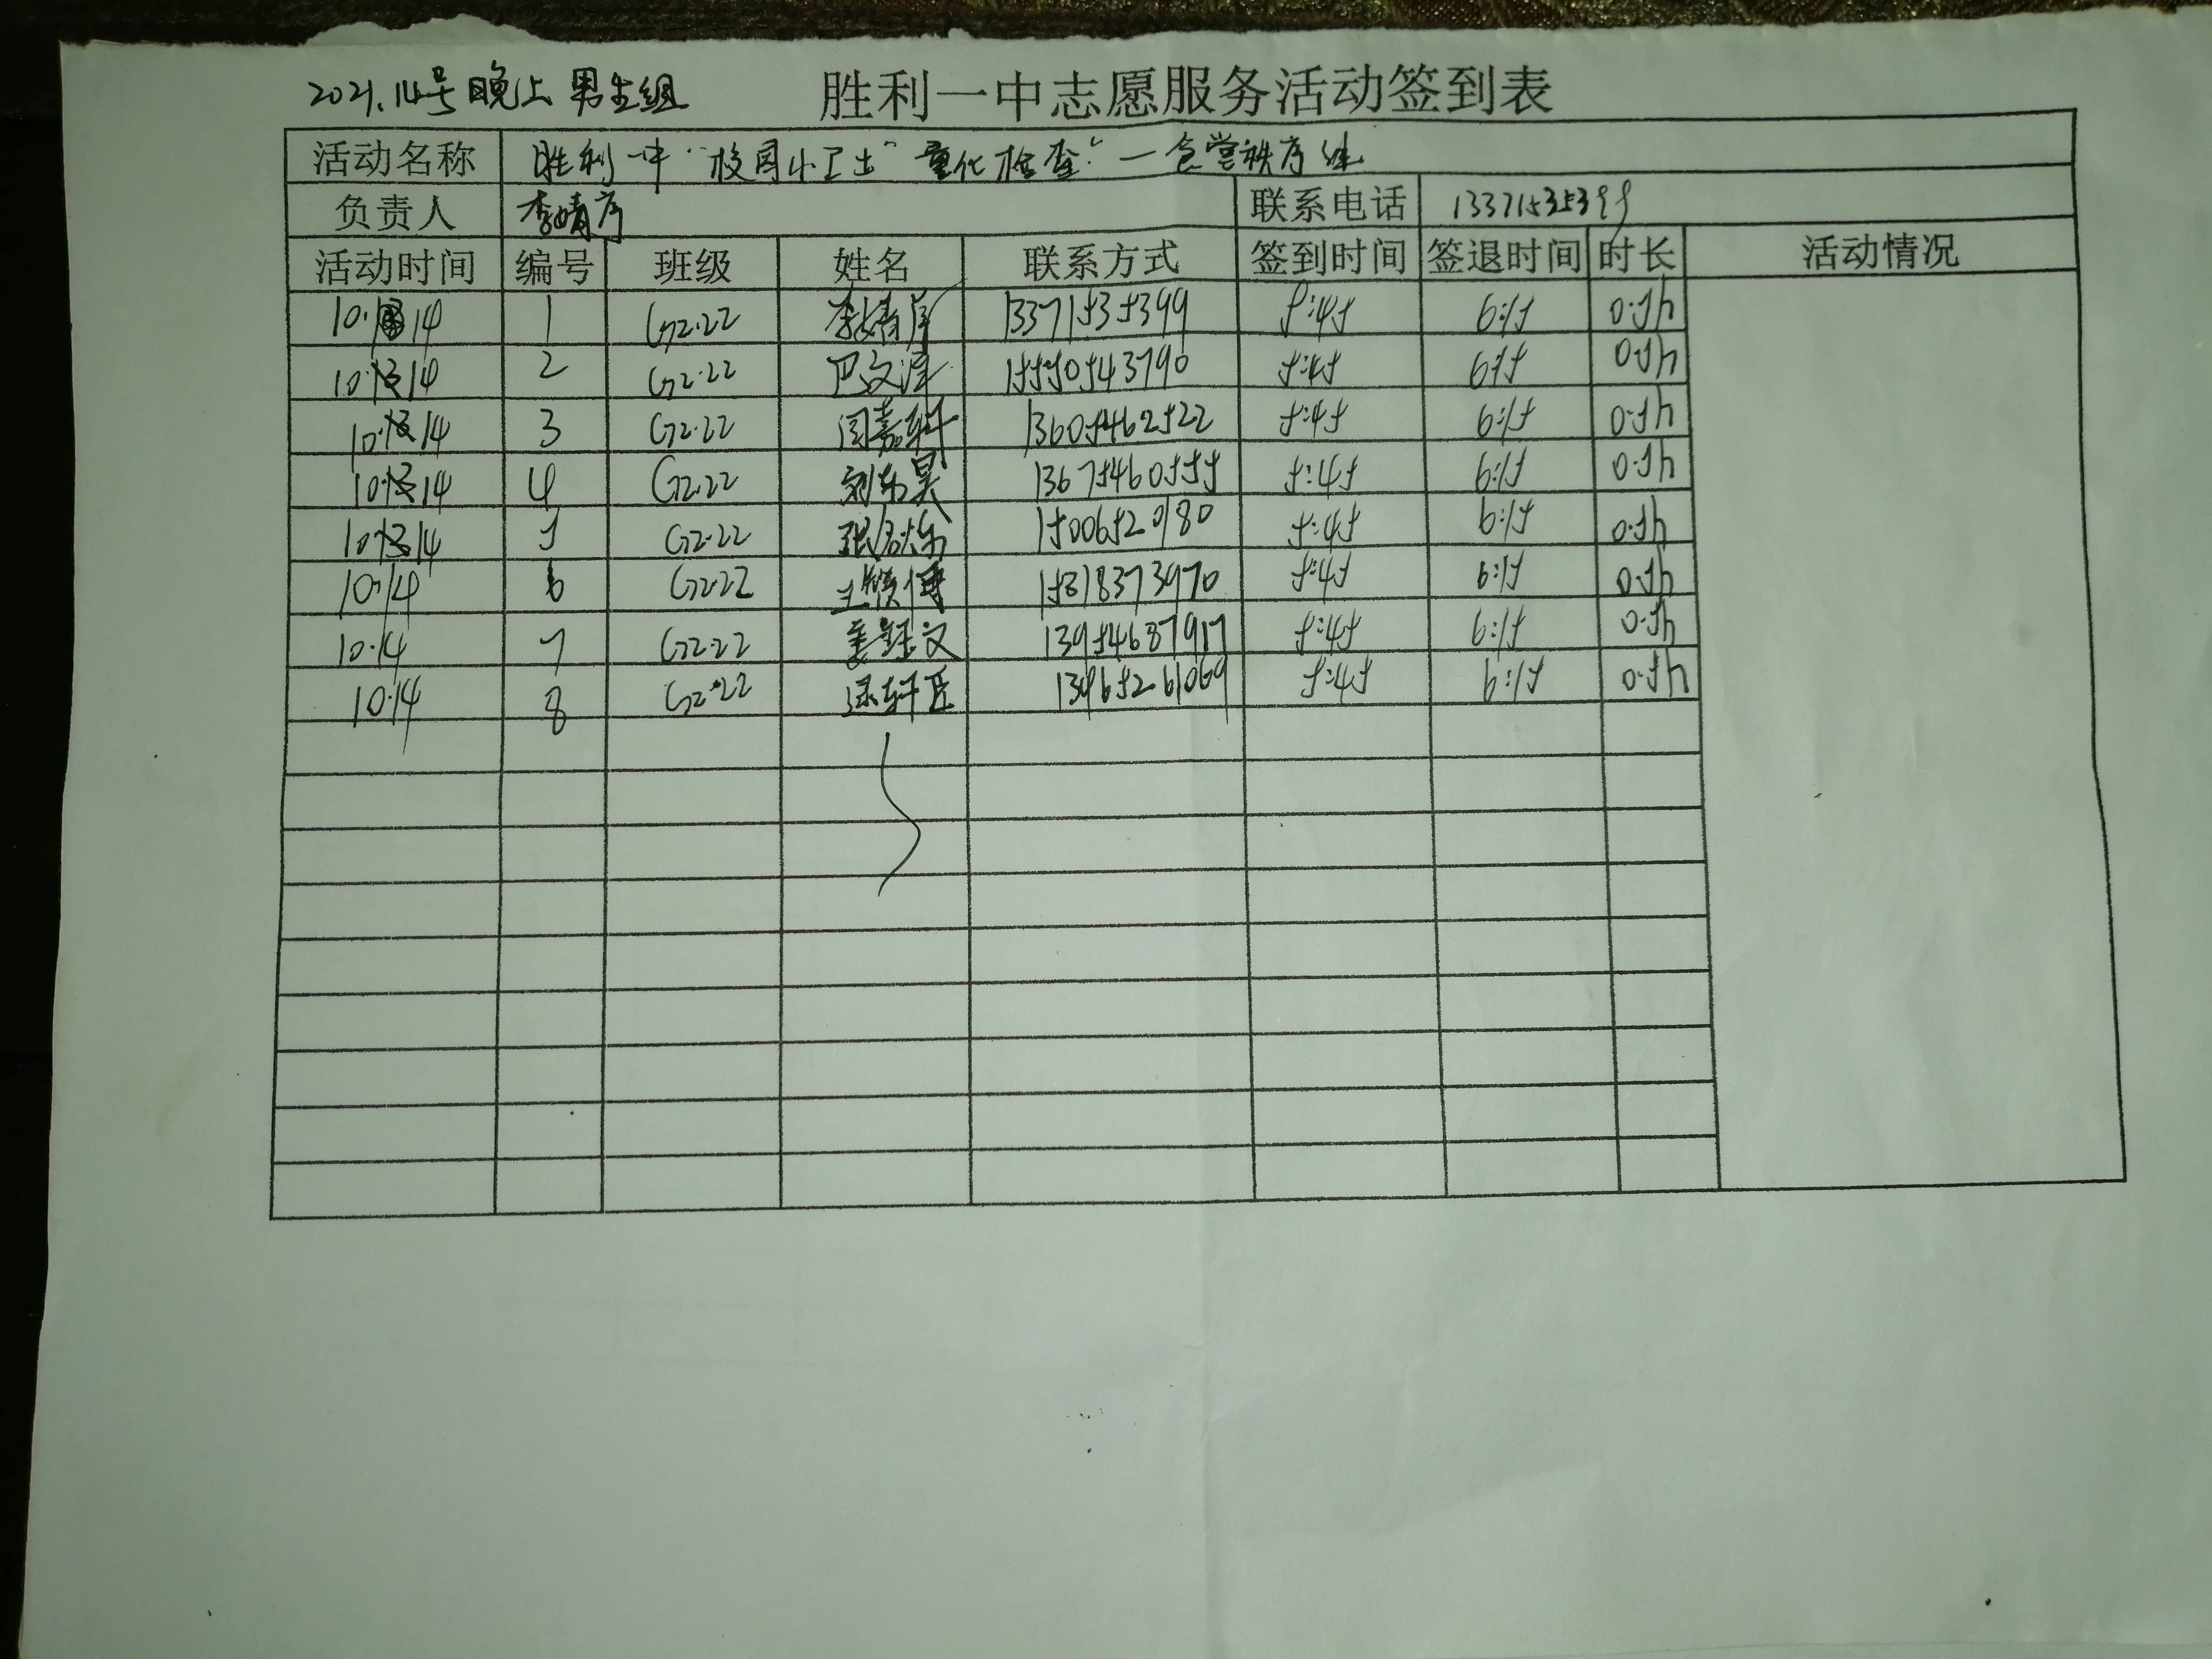 2021.14号晚上 男生组 胜利一中志愿服务活动签到表
活动名称 胜利一中“校园小卫士”量化检查“一食堂秩序
负责人 李婧序 联系电话 13371535399
活动时间 编号 班级 姓名 联系方式 签到时间 签退时间 时长 活动情况
10.14 1 G2.22 李婧序 13371535399 5:45 6:15 0.5h
10.14 2 G2.22 巴文泽 15550543790 5:45 6:15 0.5h
10.14 3 G2.22 闫嘉轩 13605462522 5:45 6:15 0.5h
10.14 4 G2.22 刘东昊 13675460555 5:45 6:15 0.5h
10.14 5 G2.22 15006520180 5:45 6:15 0.5h
10.14 6 G2.22 15318373970 5:45 6:15 0.5h
10.14 7 G2.22 13954687917 5:45 6:15 0.5h
10.14 8 G2.22 5:45 6:15 0.5h